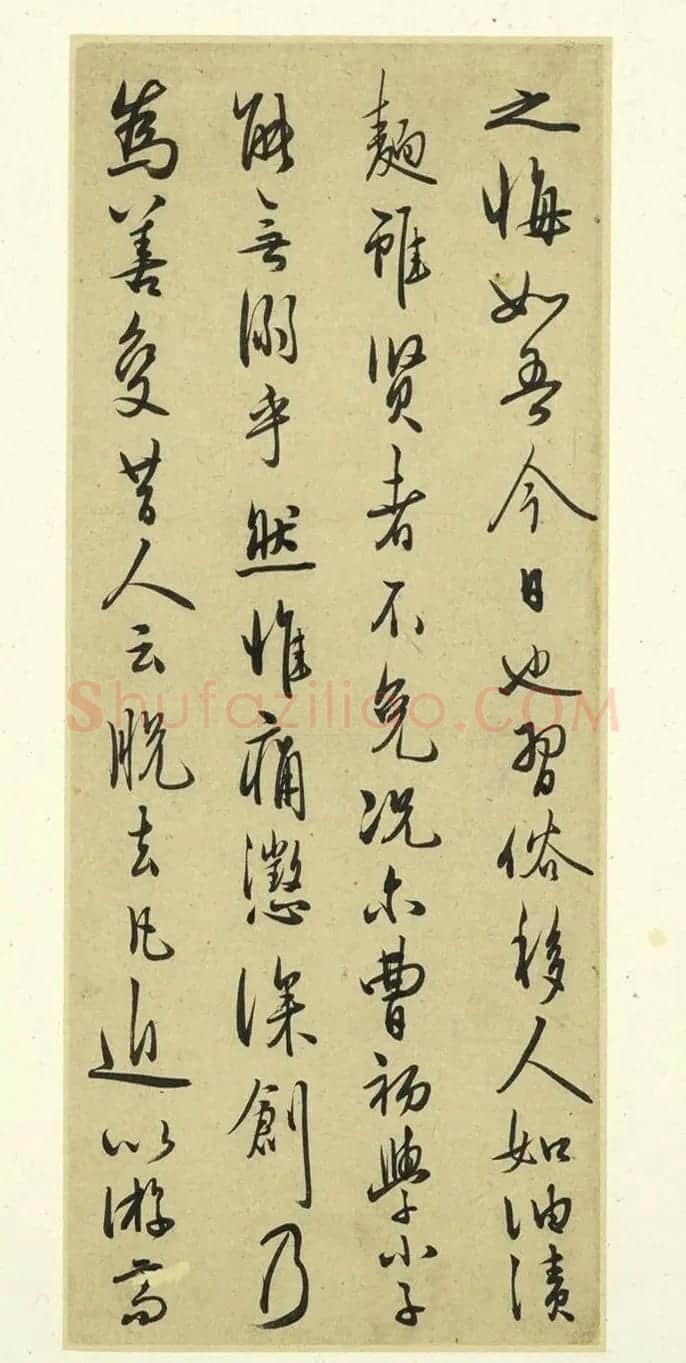 之悔如吾今日也習俗移人如油漬
麵雖賢者不免况尔曹初學小子
能無溺乎然惟痛懲深創乃
為善變昔人云脫去凡近以游高
Shufaziliao.COM